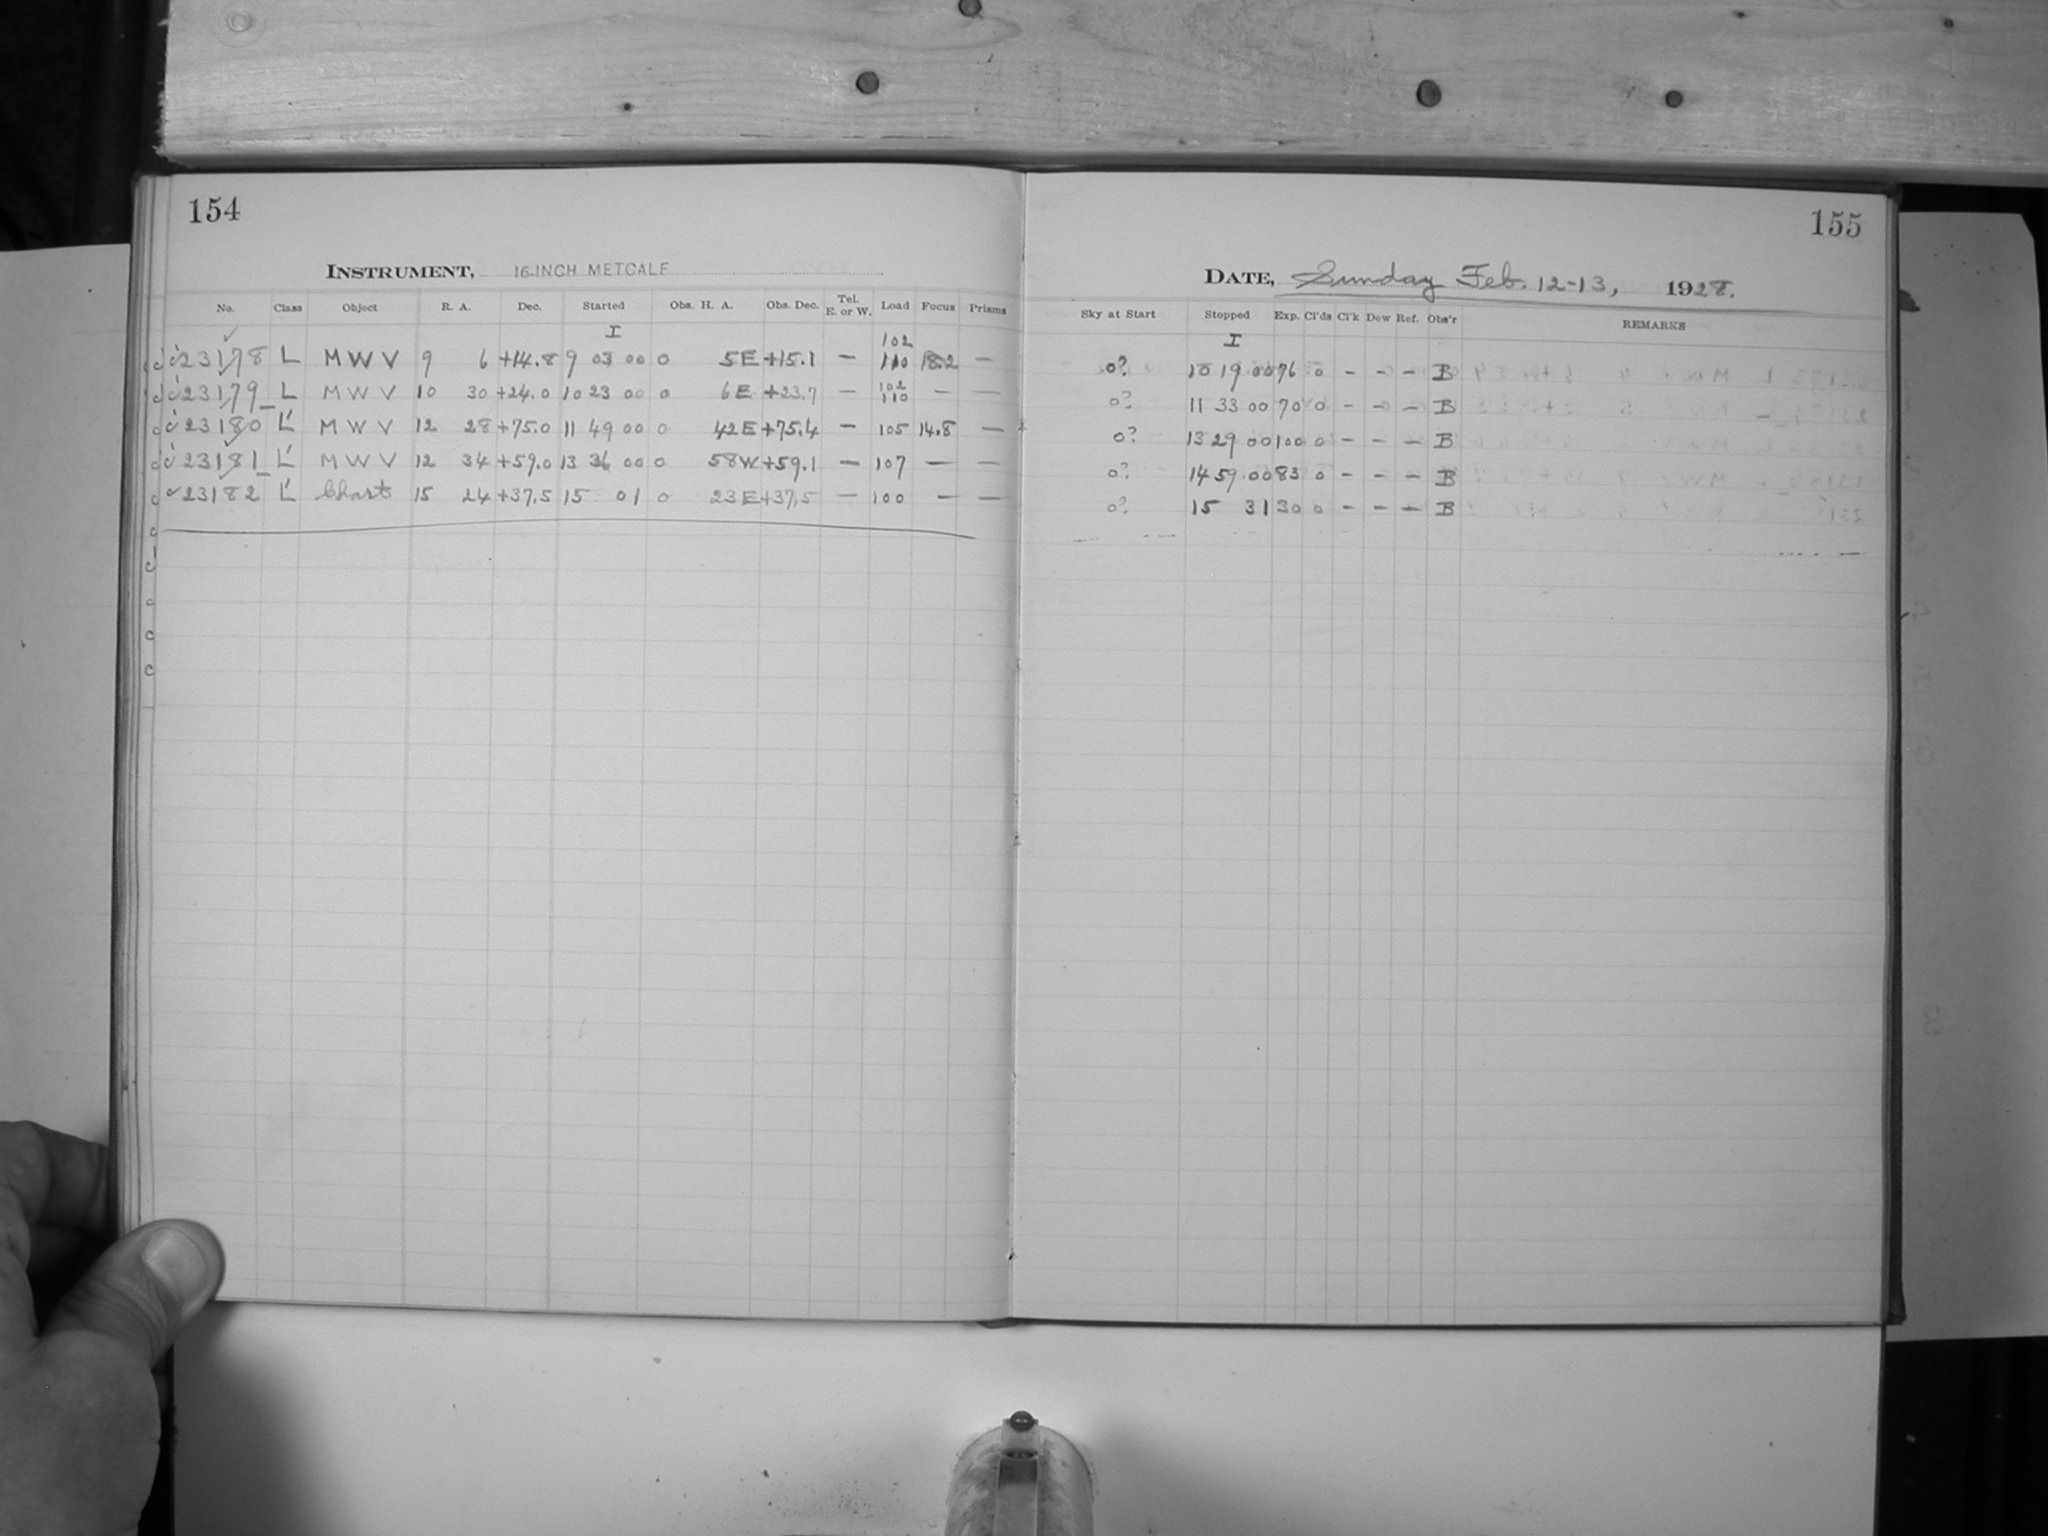 154
INSTRUMENT, 16-INCH METCALF
No. Class Object R. A. Dec. Started Obs. H. A. Obs. Dec. Tel. E. or W. Load Focus Prisms
I 102
23178 L MWV 9 6 +14.8 9 03 00 0 5E +15.1 — 110 18.2 —
23179 L MWV 10 30 +24.0 10 23 00 0 6E +23.7 — 102 110 — —
23180 L' MWV 12 28 +75.0 11 49 00 0 42E +75.4 — 105 14.8 —
23181 L' MWV 12 34 +59.0 13 36 00 0 58W +59.1 — 107 — —
23182 L' Chart 15 24 +37.5 15 01 0 23E +37.5 — 100 — —
155
DATE, Sunday Feb. 12-13, 1928.
Sky at Start Stopped Exp. Cl'ds Cl'k Dew Ref. Obs'r REMARKS
I
0? 10 19 00 76 0 - - - B
0? 11 33 00 70 0 - - - B
0? 13 29 00 100 0 - - - B
0? 14 59 00 83 0 - - - B
0? 15 31 30 0 - - - B